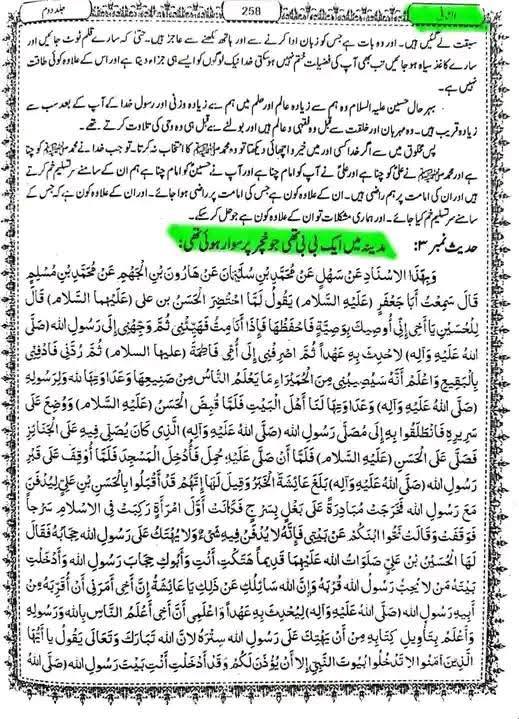 جلد دوم
258
الشافی
سبقت لے گئیں ہیں۔ اور وہ بات ہے جس کو زبان ادا کرنے سے اور ہاتھ لکھنے سے عاجز ہیں۔ حتیٰ کہ سارے قلم ٹوٹ جائیں اور
سارے کاغذ سیاہ ہو جائیں تب بھی آپ کی فضیلت ختم نہیں ہو سکتی خدا نیک لوگوں کو ایسے ہی جزاء دیتا ہے اور اس کے علاوہ کوئی طاقت
نہیں ہے۔
بہر حال حسین علیہ السلام وہ ہم سے زیادہ عالم اور حلم میں ہم سے زیادہ وزنی اور رسول خدا کے آپ کے بعد سب سے
زیادہ قریب ہیں۔ وہ مہربان اور خلقت سے قبل وہ فقہی و عالم ہیں اور بولنے سے قبل ہی وہ وحی کی تلاوت کرتے تھے۔
پس مخلوق میں سے اگر خدا کسی اور میں خیر و اچھائی دیکھتا تو وہ محمد ﷺ کا انتخاب نہ کرتا تو جب خدا نے محمد ﷺ کو چنا
ہے اور محمد ﷺ نے علیؑ کو چنا ہے اور علیؑ نے آپ کو امام چنا ہے اور آپ نے حسینؑ کو امام چنا ہے ہم ان کے سامنے سر تسلیم خم کرتے
ہیں اور ان کی امامت پر ہم راضی ہیں۔ ان کے علاوہ کون ہے جس کی امامت پر راضی ہوا جائے۔ اور ان کے علاوہ کون ہے کہ جس کے
سامنے سر تسلیم خم کیا جائے۔ اور ہماری مشکلات تو ان کے علاوہ کون ہے جو حل کر سکے۔
حدیث نمبر ۳: مدینہ میں ایک بی بی تھی جو خچر پر سوار ہوئی تھی:
وَبِهَذَا الْإِسْنَادِ عَنْ سَهْلٍ عَنْ مُحَمَّدِ بْنِ سُلَيْمَانَ عَنْ هَارُونَ بْنِ الْجَهْمِ عَنْ مُحَمَّدِ بْنِ مُسْلِمٍ
قَالَ سَمِعْتُ أَبَا جَعْفَرٍ (عَلَيْهِ السَّلَامِ) يَقُولُ لَمَّا احْتُضِرَ الْحَسَنُ بن علی (عَلَيْهِمَا السَّلام) قَالَ
لِلْحُسَيْنِ يَا أَخِي إِنِّي أُوصِيكَ بِوَصِيَّةٍ فَاحْفَظْهَا فَإِذَا أَنَا مِتُّ فَهَيِّئْنِي ثُمَّ وَجِّهْنِي إِلَى رَسُولِ الله (صَلَّى
اللهُ عَلَيْهِ وَآلِهِ) لِأُحْدِثَ بِهِ عَهْداً ثُمَّ اصْرِفْنِي إِلَى أُمِّي فَاطِمَةَ (عليها السلام) ثُمَّ رُدَّنِي فَادْفِنِّي
بِالْبَقِيعِ وَاعْلَمْ أَنَّهُ سَيُصِيبُنِي مِنَ الْحُمَيْرَاءِ مَا يَعْلَمُ النَّاسُ مِنْ صَنِيعِهَا وَعَدَاوَتِهَا لله وَلِرَسُولِهِ
(صَلَّى اللهُ عَلَيْهِ وَآلِهِ) وَعَدَاوَتِهَا لَنَا أَهْلَ الْبَيْتِ فَلَمَّا قُبِضَ الْحَسَنُ (عَلَيْهِ السَّلام) وَوُضِعَ عَلَى
سَرِيرِهِ فَانْطَلَقُوا بِهِ إِلَى مُصَلَّى رَسُولِ الله (صَلَّى اللهُ عَلَيْهِ وَآلِهِ) الَّذِي كَانَ يُصَلِّي فِيهِ عَلَى الْجَنَائِزِ
فَصَلَّى عَلَى الْحَسَنِ (عَلَيْهِ السَّلام) فَلَمَّا أَنْ صَلَّى عَلَيْهِ حُمِلَ فَأُدْخِلَ الْمَسْجِدَ فَلَمَّا أُوقِفَ عَلَى قَبْرِ
رَسُولِ الله (صَلَّى اللهُ عَلَيْهِ وَآلِهِ) بَلَغَ عَائِشَةَ الْخَبَرُ وَقِيلَ لَهَا إِنَّهُمْ قَدْ أَقْبَلُوا بِالْحَسَنِ بْنِ عَلِيٍّ لِيُدْفَنَ
مَعَ رَسُولِ الله فَخَرَجَتْ مُبَادِرَةً عَلَى بَغْلٍ بِسَرْجٍ فَكَانَتْ أَوَّلَ امْرَأَةٍ رَكِبَتْ فِي الْإِسْلَامِ سَرْجاً
فَوَقَفَتْ وَقَالَتْ نَحُّوا ابْنَكُمْ عَنْ بَيْتِي فَإِنَّهُ لَا يُدْفَنُ فِيهِ شَيْءٌ وَلَا يُهْتَكُ عَلَى رَسُولِ الله حِجَابُهُ فَقَالَ
لَهَا الْحُسَيْنُ بْنُ عَلِيٍّ صَلَوَاتُ الله عَلَيْهِمَا قَدِيماً هَتَكْتِ أَنْتِ وَأَبُوكِ حِجَابَ رَسُولِ الله وَأَدْخَلْتِ
بَيْتَهُ مَنْ لَا يُحِبُّ رَسُولُ الله قُرْبَهُ وَإِنَّ الله سَائِلُكِ عَنْ ذَلِكِ يَا عَائِشَةُ إِنَّ أَخِي أَمَرَنِي أَنْ أُقَرِّبَهُ مِنْ
أَبِيهِ رَسُولِ الله (صَلَّى اللهُ عَلَيْهِ وَآلِهِ) لِيُحْدِثَ بِهِ عَهْداً وَاعْلَمِي أَنَّ أَخِي أَعْلَمُ النَّاسِ بِالله وَرَسُولِهِ
وَأَعْلَمُ بِتَأْوِيلِ كِتَابِهِ مِنْ أَنْ يَهْتِكَ عَلَى رَسُولِ الله سِتْرَهُ لِأَنَّ الله تَبَارَكَ وَتَعَالَى يَقُولُ يَا أَيُّهَا
الَّذِينَ آمَنُوا لَا تَدْخُلُوا بُيُوتَ النَّبِيِّ إِلَّا أَنْ يُؤْذَنَ لَكُمْ وَقَدْ أَدْخَلْتِ أَنْتِ بَيْتَ رَسُولِ الله (صَلَّى